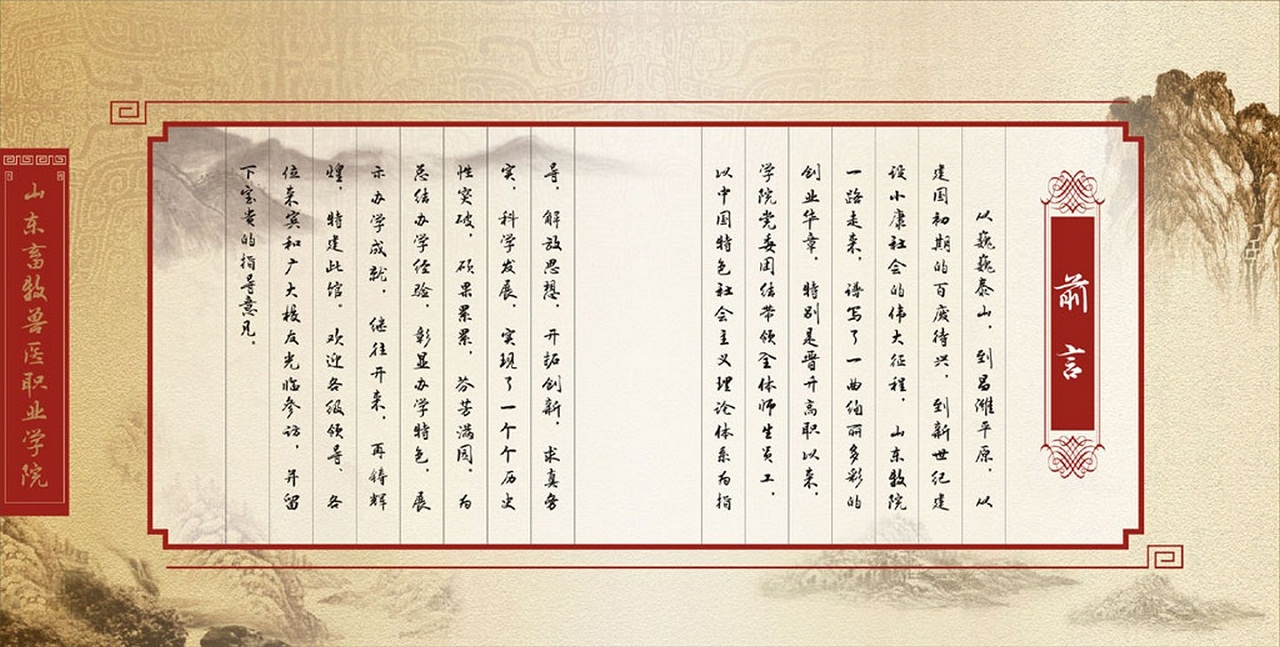 前言
以巍巍泰山，到昌潍平原，从
建国初期的百废待兴，到新世纪建
设小康社会的伟大征程，山东牧院
一路走来，谱写了一曲绚丽多彩的
创业华章。特别是晋升高职以来，
学院党委团结带领全体师生员工，
以中国特色社会主义理论体系为指
导，解放思想，开拓创新，求真务
实，科学发展，实现了一个个历史
性突破，硕果累累，芬芳满园。为
总结办学经验，彰显办学特色，展
示办学成就，继往开来，再铸辉
煌，特建此馆。欢迎各级领导、各
位来宾和广大校友光临参访，并留
下宝贵的指导意见。
山东畜牧兽医职业学院